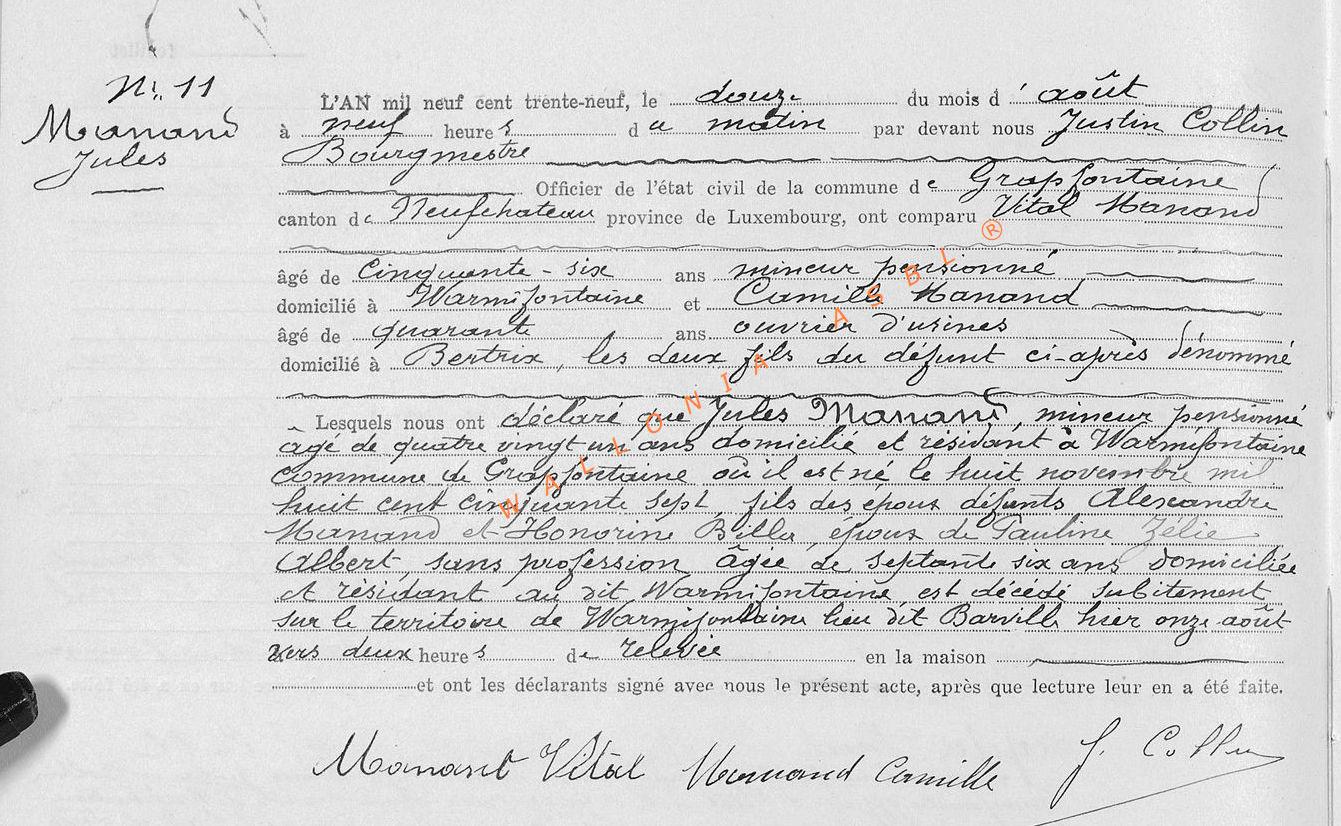 N°. 11
Manand
Jules
L'AN mil neuf cent trente-neuf, le douze du mois d' août
à neuf heures du matin par devant nous Justin Collin
Bourgmestre
Officier de l'état civil de la commune de Grapfontaine
canton de Neufchateau province de Luxembourg, ont comparu Vital Manand
âgé de Cinquante-six ans mineur pensionné
domicilié à Warmifontaine et Camille Manand
âgé de quarante ans ouvrier d'usines
domicilié à Bertrix, les deux fils du défunt ci-après dénommé
Lesquels nous ont déclaré que Jules Manand, mineur pensionné
âgé de quatre vingt un ans domicilié et résidant à Warmifontaine
commune de Grapfontaine où il est né le huit novembre mil
huit cent cinquante sept, fils des époux défunts Alexandre
Manand et Honorine Billa, époux de Pauline Zélie
Albert, sans profession âgée de septante six ans domiciliée
et résidant au dit Warmifontaine, est décédé subitement
sur le territoire de Warmifontaine lieu dit Barville hier onze août
vers deux heures de relevée en la maison
et ont les déclarants signé avec nous le présent acte, après que lecture leur en a été faite.
Manand Vital Manand Camille J. Collin
WALLONIA ASBL ®